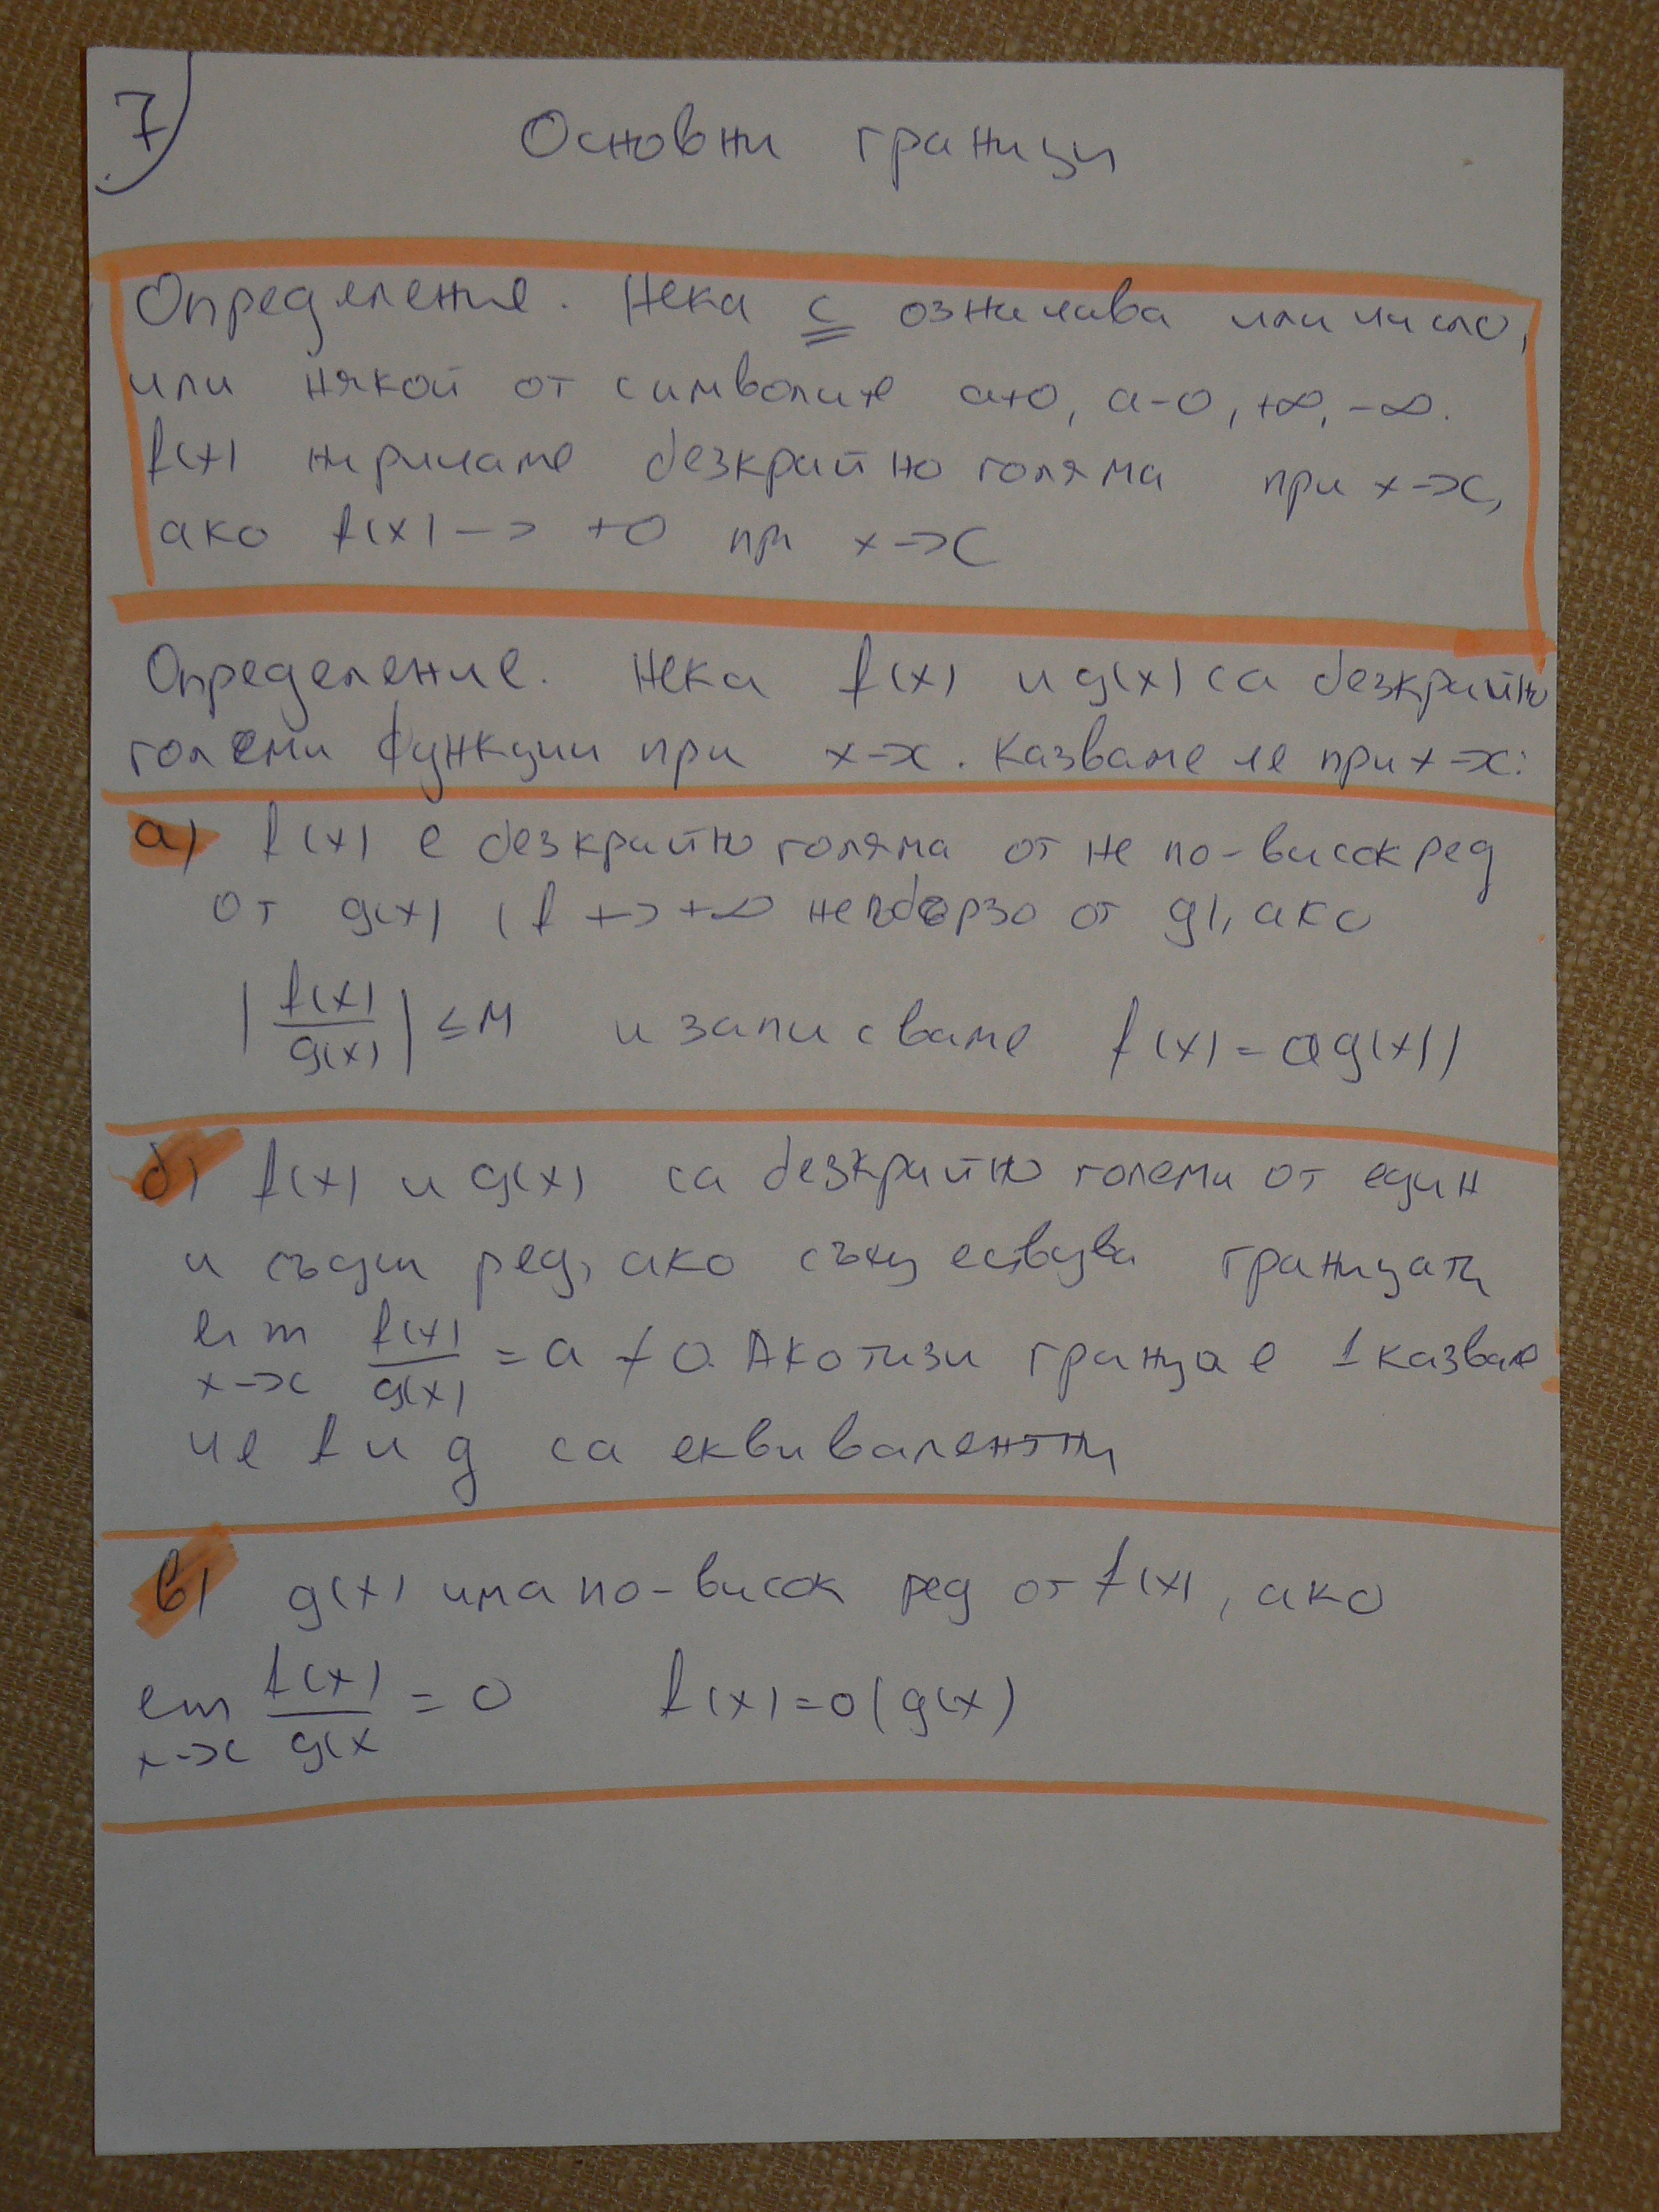 7)
Основни граници
Определение. Нека c означава или число,
или някой от символите a+0, a-0, +∞, -∞.
f(x) наричаме безкрайно голяма при x->c,
ако f(x) -> +0 при x->c
Определение. Нека f(x) и g(x) са безкрайно
големи функции при x->c. Казваме че при x->c:
а) f(x) е безкрайно голяма от не по-висок ред
от g(x) (f +-> +∞ не по бързо от g), ако
|f(x)/g(x)| ≤ M и записваме f(x) = O(g(x))
б) f(x) и g(x) са безкрайно големи от един
и същи ред, ако съществува границата
lim x->c f(x)/g(x) = a ≠ 0. Ако тази граница е 1 казваме
че f и g са еквивалентни
в) g(x) има по-висок ред от f(x), ако
lim x->c f(x)/g(x = 0 f(x) = o(g(x)